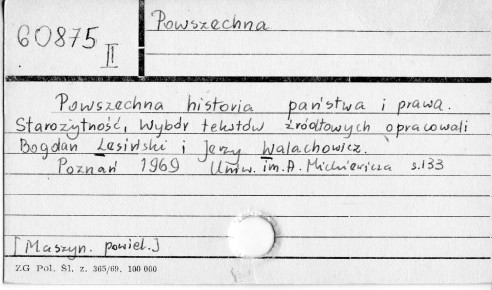 60875 II
Powszechna
Powszechna historia państwa i prawa.
Starożytność, Wybór tekstów źródłowych opracowali
Bogdan Lesiński i Jerzy Walachowicz.
Poznań 1969 Uniw. im. A. Mickiewicza s.133
[Maszyn. powiel.]
ZG Pol. Śl. z. 365/69. 100 000